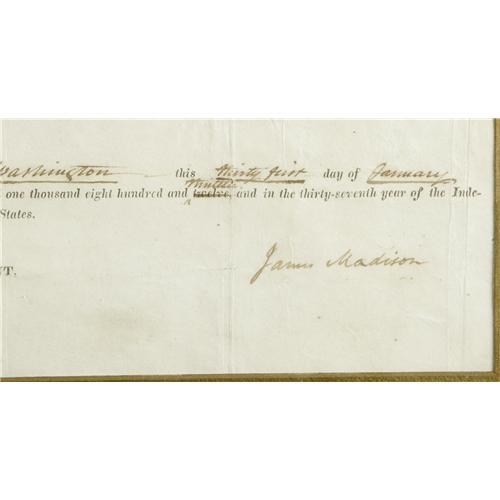 Washington this thirty first day of January
thirteen
one thousand eight hundred and twelve, and in the thirty-seventh year of the Inde-
States.
NT.
James Madison